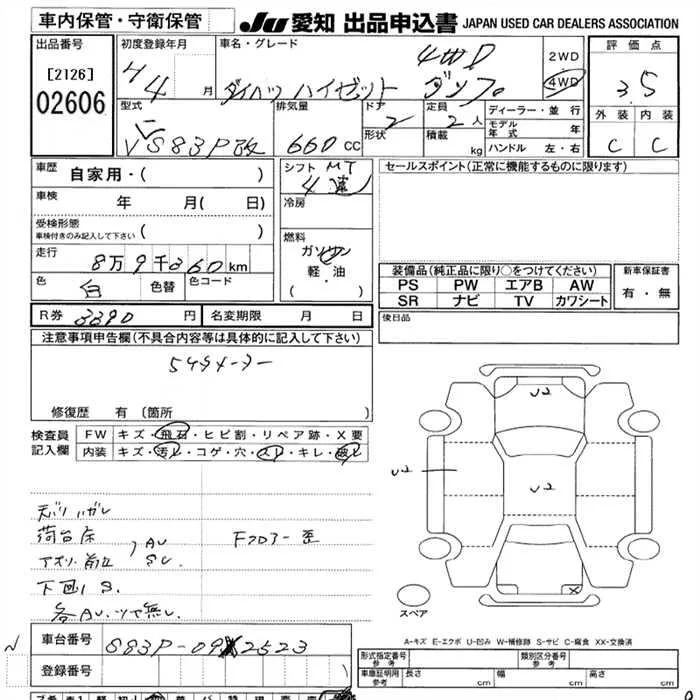 車内保管・守衛保管
JU 愛知 出品申込書 JAPAN USED CAR DEALERS ASSOCIATION
出品番号
[2126]
02606
初度登録年月
H4 月
車名・グレード
4WD
ダイハツ ハイゼット ダンプ
2WD
4WD
評価点
3.5
外装 内装
C C
型式
V-S83P改
排気量
660 CC
ドア 2
形状
定員 2 人
積載 kg
ディーラー・並行
モデル年式 年
ハンドル 左・右
車歴
自家用・( )
車検
年 月( 日)
受検形態
車検付きのみ記入して下さい
走行
8万9千860km
色 白 色替 色コード
シフト MT
4速
冷房
燃料
ガソリン
軽・油
( ・ )
セールスポイント(正常に機能するものに限ります)
装備品(純正品に限り○をつけてください)
PS PW エアB AW
SR ナビ TV カワシート
新車保証書
有・無
R券 8890 円 名変期限 月 日
後日品
注意事項申告欄(不具合内容等は具体的に記入して下さい)
5ケタメーター
修復歴 有(箇所 )
検査員
記入欄
FW キズ・飛石・ヒビ割・リペア跡・X要
内装 キズ・汚レ・コゲ・穴・スレ・キレ・破レ
天バリハガレ
荷台床
アオリ・前立
AU
SU
Fフロアー歪
下回りS
各AU・ツヤ無し
U2
U2
U2
X
スペア
A-キズ E-エクボ U-凹み W-補修跡 S-サビ C-腐食 XX-交換済
車台番号
S83P-092523
登録番号
形式指定番号
参考
類別区分番号
参考
車庫証明用
参考
長さ cm 幅 cm 高さ cm